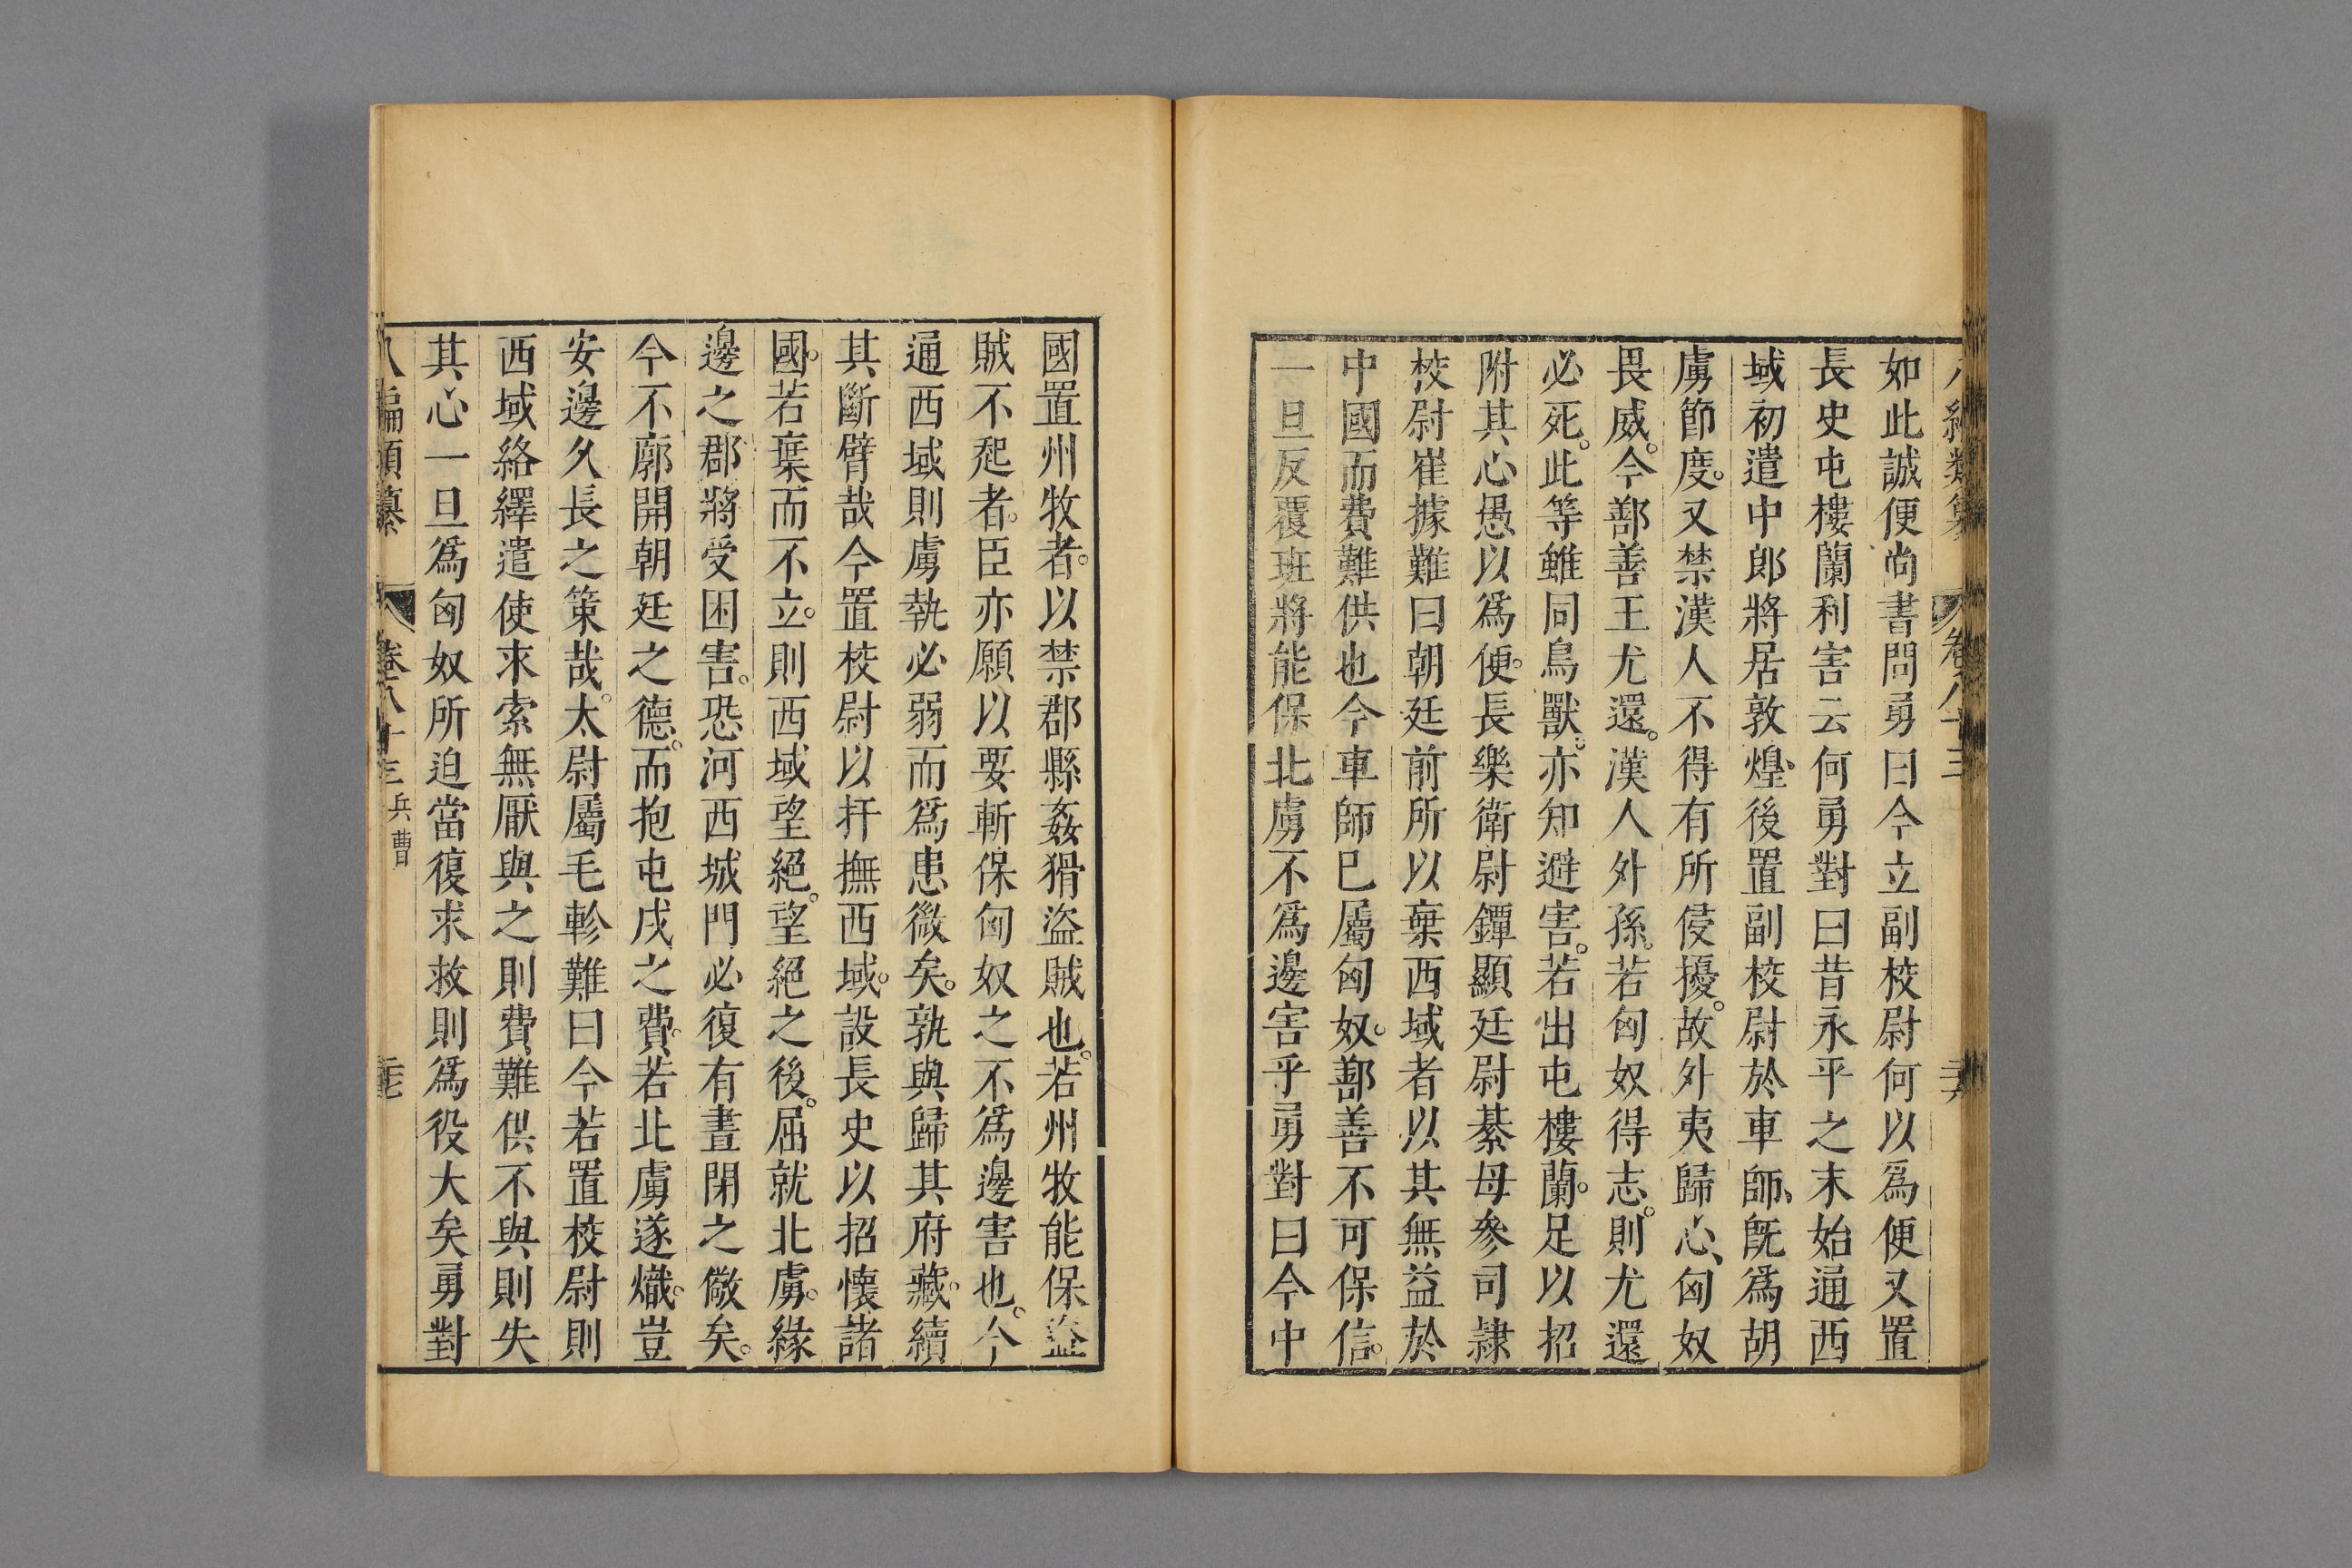 如此誠便尚書問勇曰今立副校尉何以爲便又置
長史屯樓蘭利害云何勇對曰昔永平之末始通西
域初遣中郎將居敦煌後置副校尉於車師、旣爲胡
虜節度。又禁漢人不得有所侵擾。故外夷歸心、匈奴
畏威。今鄯善王尤還。漢人外孫。若匈奴得志。則尤還
必死。此等雖同鳥獸。亦知避害。若出屯樓蘭。足以招
附其心愚以爲便。長樂衛尉鐔顯廷尉綦母參司隷
校尉崔據難曰朝廷前所以棄西域者以其無益於
中國而費難供也今車師已屬匈奴。鄯善不可保信。
一旦反覆班將能保北虜不爲邊害乎勇對曰今中
國置州牧者。以禁郡縣姦猾盜賊也。若州牧能保盜
賊不起者。臣亦願以要斬保匈奴之不爲邊害也。今
通西域則虜執必弱而爲患微矣。孰與歸其府藏。續
其斷臂哉今置校尉以扞撫西域。設長史以招懷諸
國。若棄而不立。則西域望絕。望絕之後。屈就北虜。緣
邊之郡將受困害。恐河西城門必復有晝閉之儆矣。
今不廓開朝廷之德。而抱屯戍之費。若北虜遂熾。豈
安邊久長之策哉。太尉屬毛軫難曰今若置校尉則
西域絡繹遣使求索無厭與之則費難供不與則失
其心一旦爲匈奴所迫當復求救則爲役大矣勇對
八編類纂 卷八十三 兵曹 三七